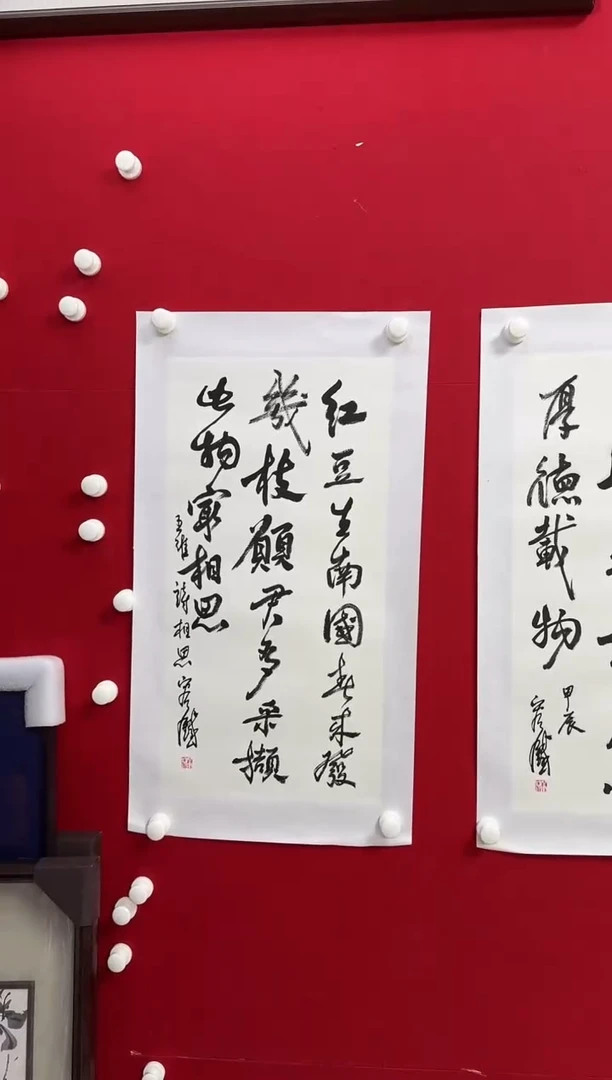 红豆生南國春来發
幾枝願君多采擷
此物最相思
王維詩相思
厚德載物
甲辰